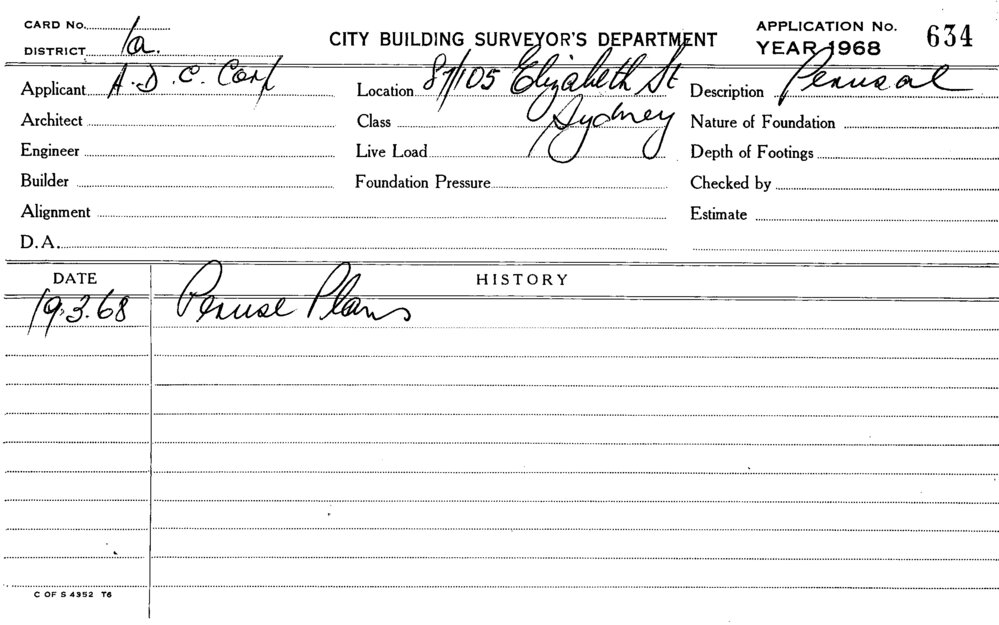 CARD No.
DISTRICT 1a.
CITY BUILDING SURVEYOR'S DEPARTMENT
APPLICATION No. 634
YEAR 1968
Applicant A.D.C. Corp Location 87/105 Elizabeth St Description Perusal
Architect Class Sydney Nature of Foundation
Engineer Live Load Depth of Footings
Builder Foundation Pressure Checked by
Alignment Estimate
D.A.
DATE HISTORY
19.3.68 Peruse Plans
C OF S 4352 T6